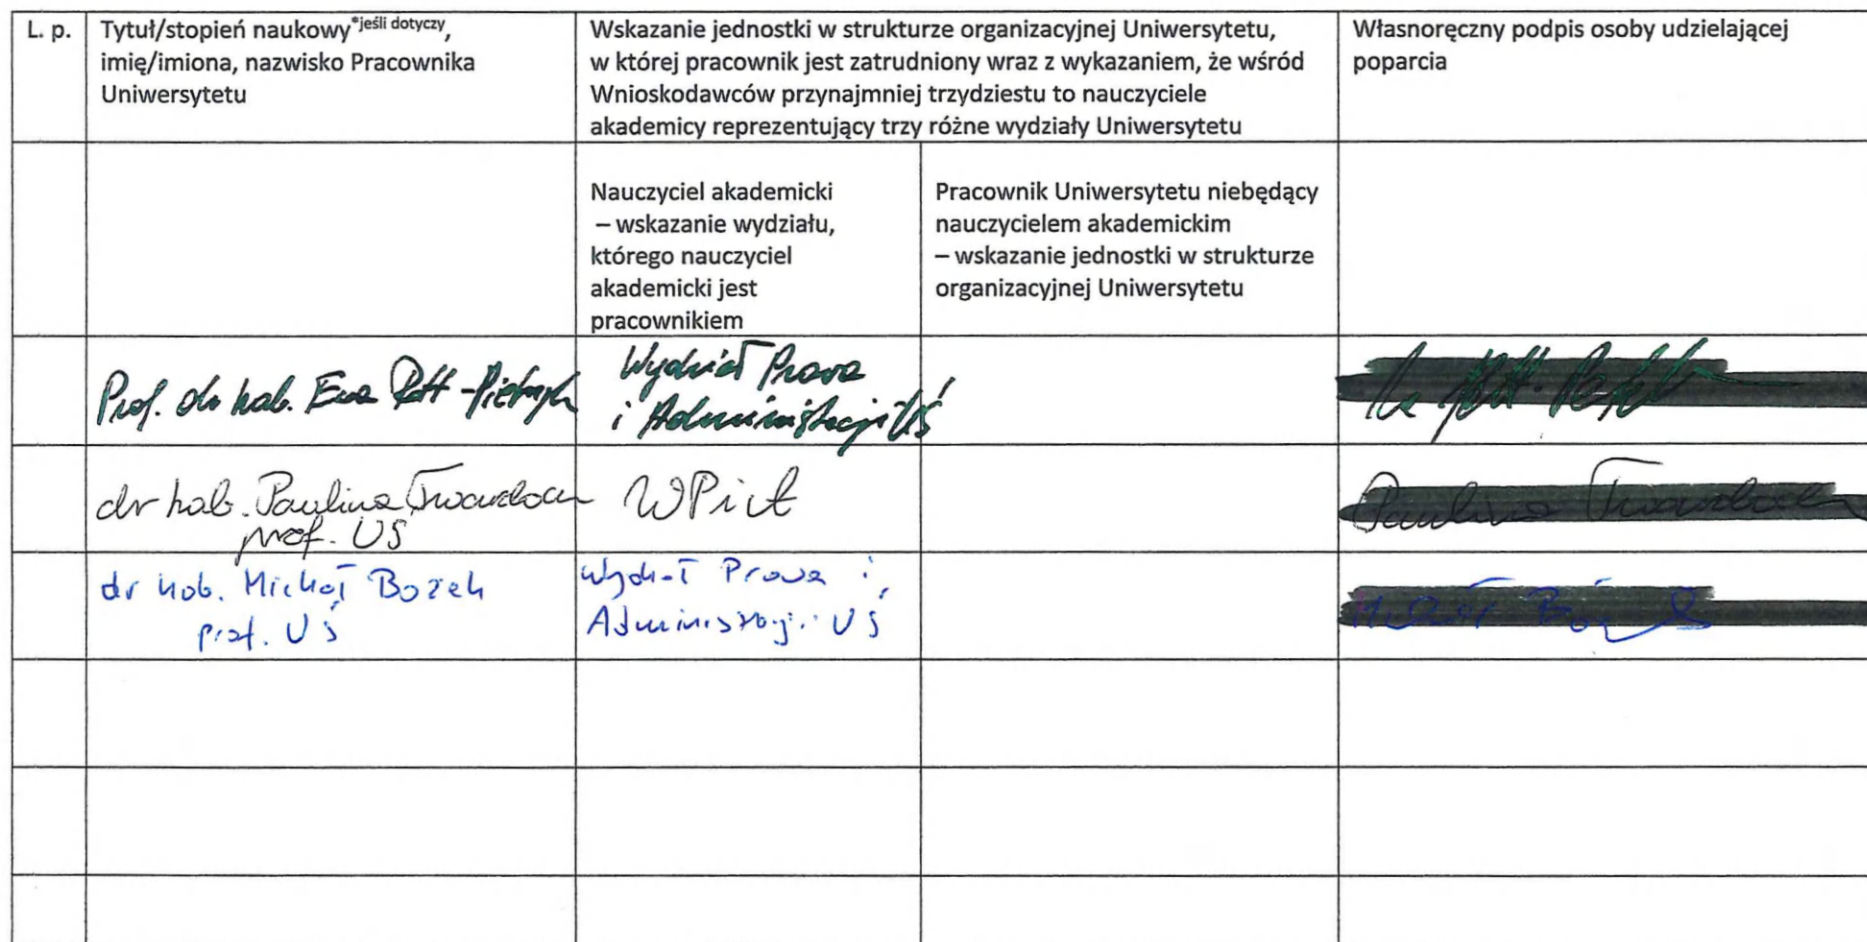 L. p.
Tytuł/stopień naukowy*jeśli dotyczy,
imię/imiona, nazwisko Pracownika
Uniwersytetu
Wskazanie jednostki w strukturze organizacyjnej Uniwersytetu,
w której pracownik jest zatrudniony wraz z wykazaniem, że wśród
Wnioskodawców przynajmniej trzydziestu to nauczyciele
akademicy reprezentujący trzy różne wydziały Uniwersytetu
Własnoręczny podpis osoby udzielającej
poparcia
Nauczyciel akademicki
– wskazanie wydziału,
którego nauczyciel
akademicki jest
pracownikiem
Pracownik Uniwersytetu niebędący
nauczycielem akademickim
– wskazanie jednostki w strukturze
organizacyjnej Uniwersytetu
Prof. dr hab. Ewa Rott-Pietrzyk
Wydział Prawa
i Administracji UŚ
dr hab. Paulina Twardoch
prof. UŚ
WPiA
Paulina Twardoch
dr hab. Michał Bożek
prof. UŚ
Wydział Prawa i
Administracji UŚ